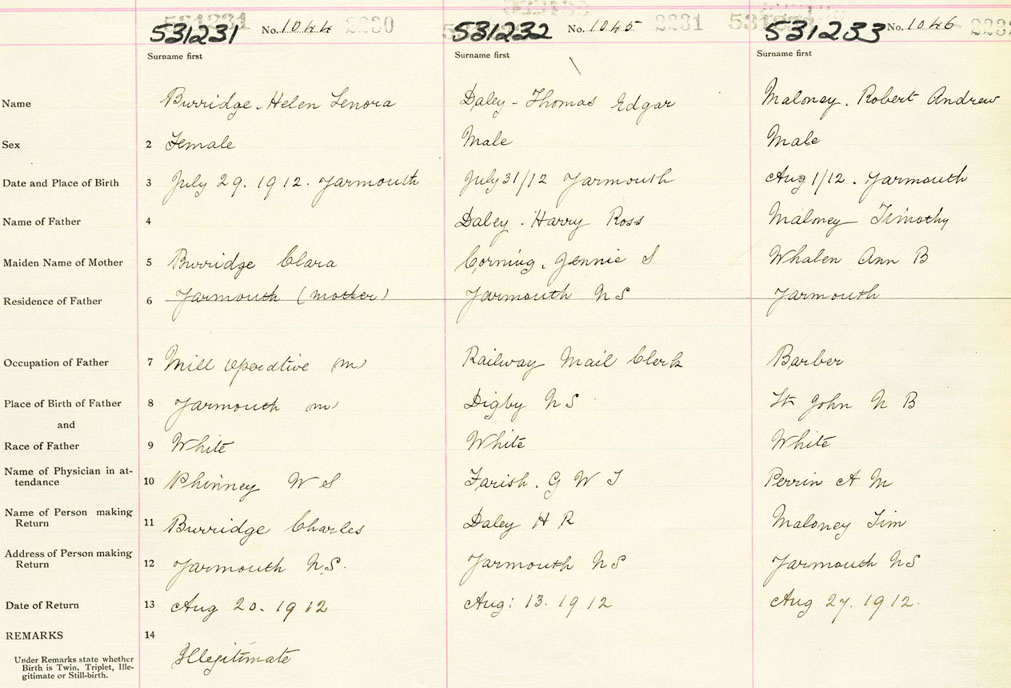 531231 No. 1044 2230 531232 No. 1045 2231 531233 No. 1046
Surname first Surname first Surname first
Name Burridge. Helen Lenora Daley - Thomas Edgar Maloney. Robert Andrew
Sex 2 Female Male Male
Date and Place of Birth 3 July 29. 1912. Yarmouth July 31/12 Yarmouth Aug 1/12. Yarmouth
Name of Father 4 Daley. Harry Ross Maloney Timothy
Maiden Name of Mother 5 Burridge Clara Corning. Jennie S Whalen Ann B
Residence of Father 6 Yarmouth (mother) Yarmouth NS Yarmouth
Occupation of Father 7 Mill Operative (m) Railway Mail Clerk Barber
Place of Birth of Father 8 Yarmouth (m) Digby NS St John N B
and
Race of Father 9 White White White
Name of Physician in at-
tendance 10 Phinney W S Farish. G W T Perrin A M
Name of Person making
Return 11 Burridge Charles Daley H R Maloney Tim
Address of Person making
Return 12 Yarmouth N.S. Yarmouth NS Yarmouth NS
Date of Return 13 Aug 20. 1912 Aug: 13. 1912 Aug 27. 1912.
REMARKS 14
Under Remarks state whether
Birth is Twin, Triplet, Ille-
gitimate or Still-birth. Illegitimate